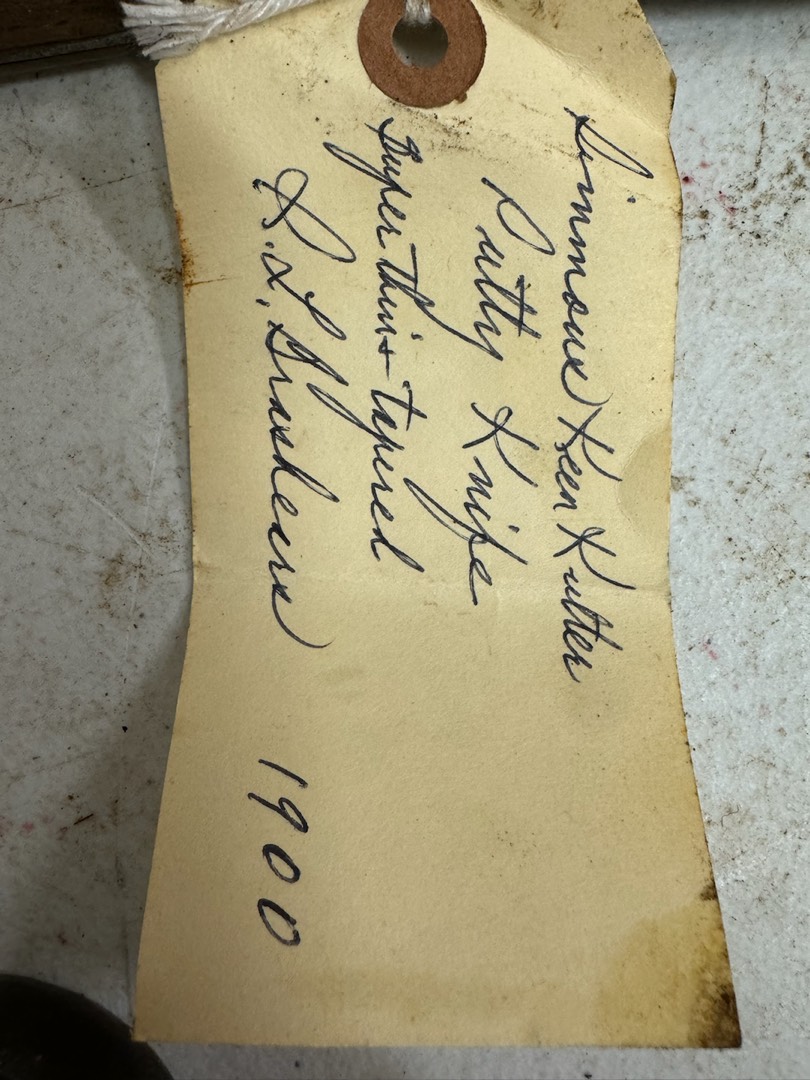 Simmons Keen Kutter
Putty Knife
Super thin + tapered
R.L. Brashears 1900